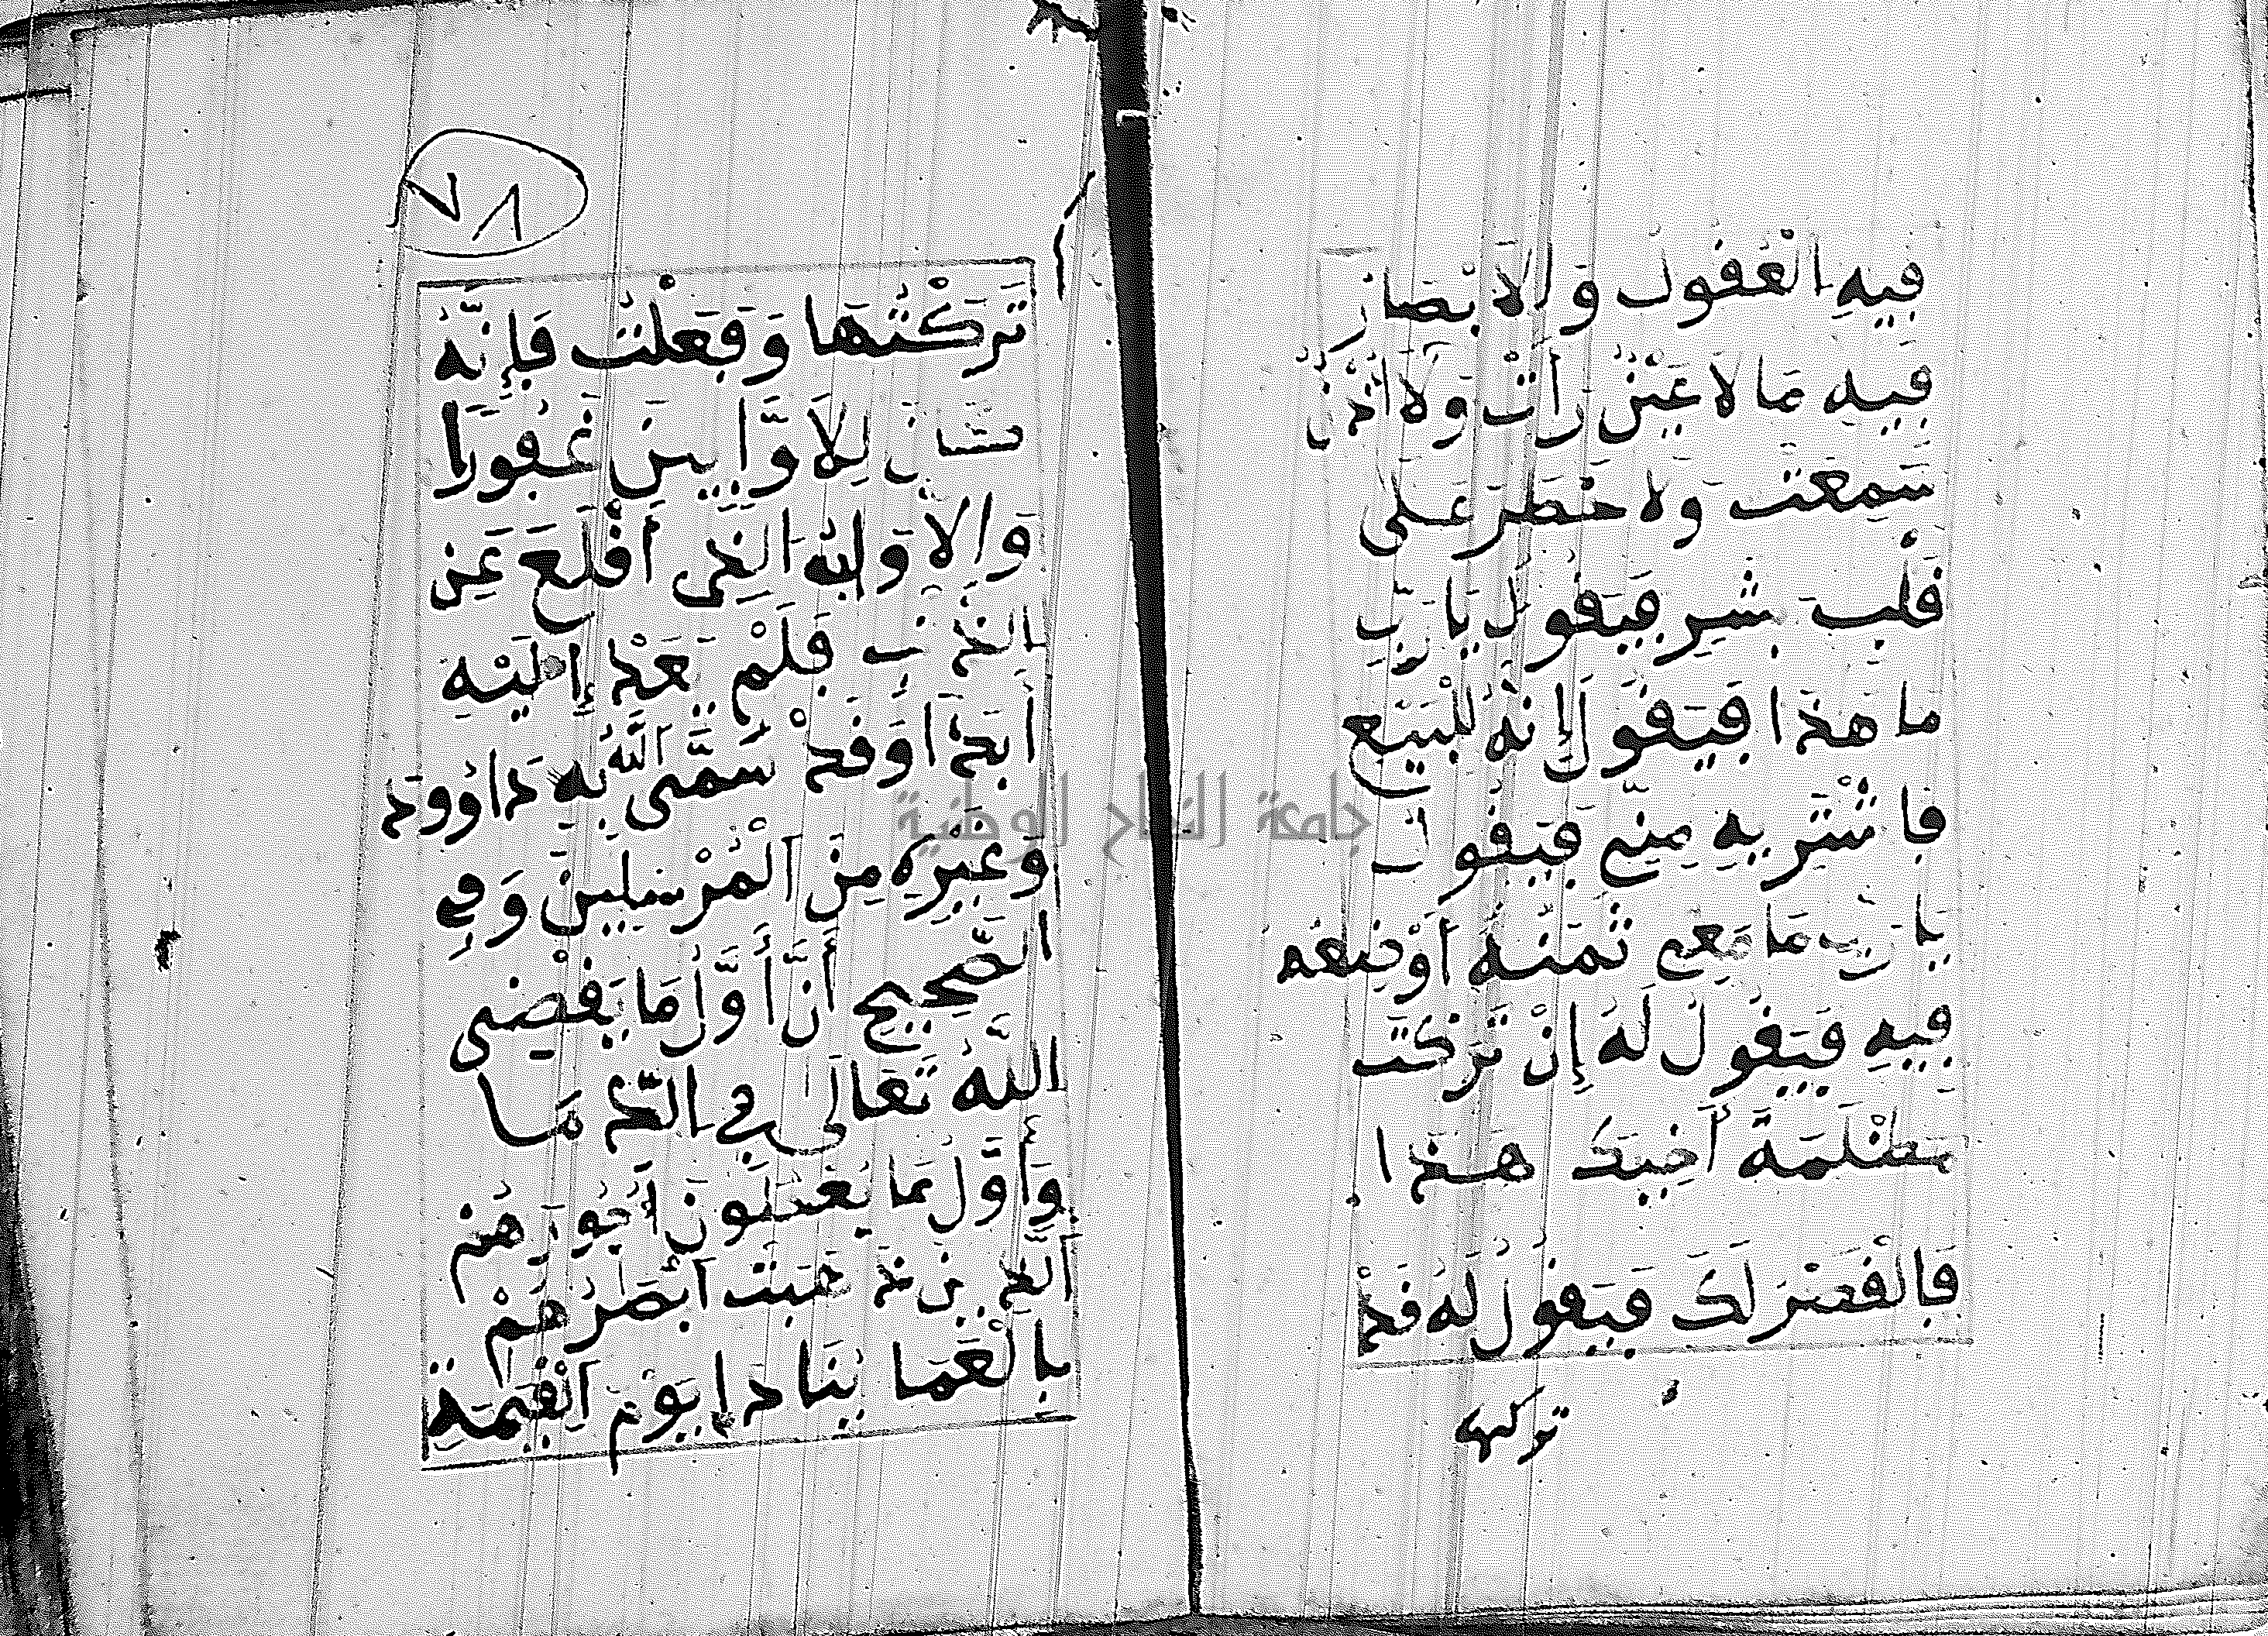 فِيهِ الْعُقُولُ وَالَابْصَارُ
فِيهِ مَا لَا عَيْنٌ رَأَتْ وَلَا أُذُنٌ
سَمِعَتْ وَلَا خَطَرَ عَلَى
قَلْبِ بَشَرٍ فَيَقُولُ يَا رَبِّ
مَا هَذَا فَيَقُولُ إِنَّهُ لِلْبَيْعِ
فَاشْتَرِيهِ مِنِّي فَيَقُولُ
يَا رَبِّ مَا مَعِي ثَمَنُهُ أَوْ
فِيهِ فَيَقُولُ لَهُ إِنْ تَرَكْتَ
مَظْلَمَةَ أَخِيكَ هَذَا
فَالْقَصْرُ لَكَ فَيَقُولُ لَهُ قَدْ
تركتها
٧٨
تَرَكْتُهَا وَفَعَلْتُ فَإِنَّهُ
كَانَ لِلَاوَّابِينَ غَفُورًا
وَالَاوَّابُ الَّذِي أَقْلَعَ عَنِ
الذَّنْبِ فَلَمْ يَعُدْ إِلَيْهِ
أَبَدًا وَقَدْ سَمَّى اللَّهُ بِهِ دَاوُودَ
وَغَيْرَهُ مِنَ الْمُرْسَلِينَ وَفِي
الصَّحِيحِ أَنَّ أَوَّلَ مَا يَقْضِي
اللَّهُ تَعَالَى فِي الدِّمَا
وَأَوَّلُ مَا يُعْطَوْنَ أُجُورَهُمُ
الَّذِينَ ذَهَبَتْ أَبْصَرُهُمْ
بِالْعَمَا يُنَادَا يَوْمَ الْقِيَمَةِ
جامعة النجاح الوطنية